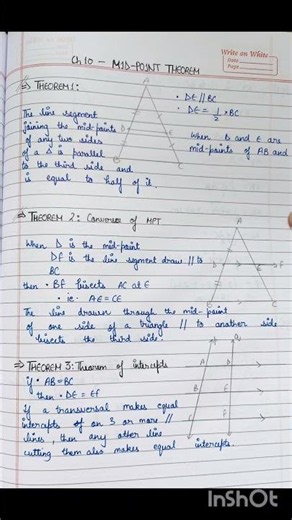 Write on White
Date
Page
Ch 10 - MID-POINT THEOREM
⇒ THEOREM 1:
A
• DE // BC
• DE = 1/2 × BC
The line segment
joining the mid-points
D
of any two sides
When D and E are
mid-points of AB and
of a Δ is parallel
to the third side and
is equal to half of it.
⇒ THEOREM 2: Converse of MPT
A
When D is the mid-point
DF is the line segment draw // to
BC
D
E
F
then • DF bisects AC at E
• ie. AE = CE
The line drawn through the mid-point
of one side of a triangle // to another side
bisects the third side.
⇒ THEOREM 3: Theorem of intercepts
if • AB = BC
then • DE = EF
A
D
B
E
C
F
If a transversal makes equal
intercepts of on 3 or more //
lines, then any other line
cutting them also makes equal intercepts.
InShOt